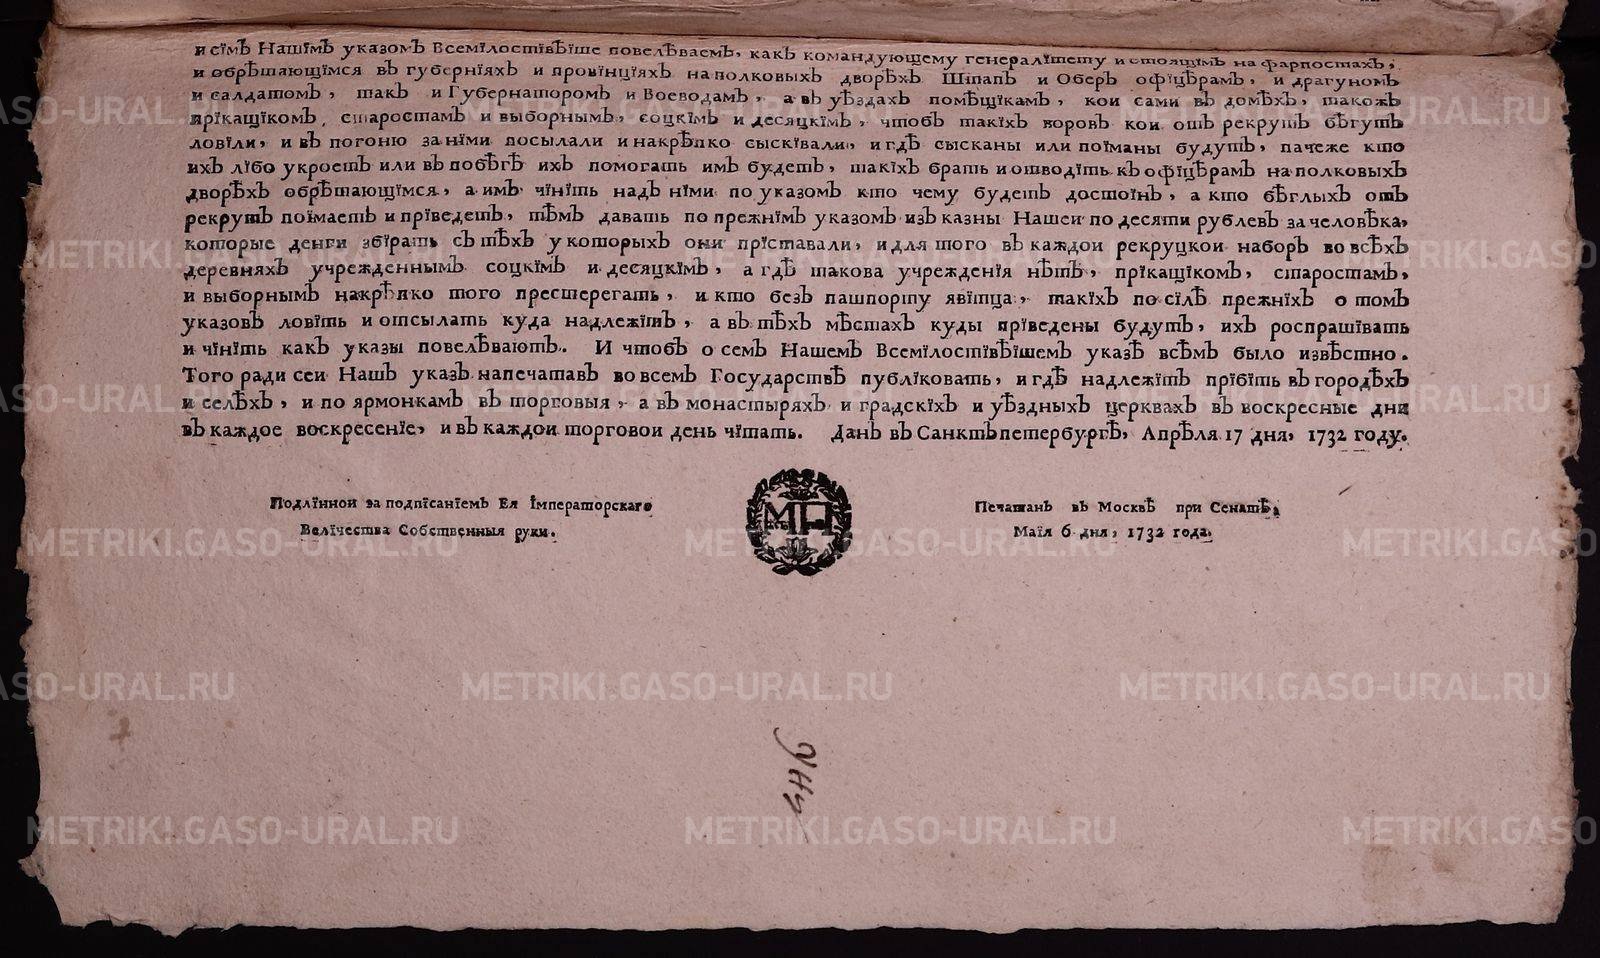 и сїмЪ НашїмЪ указомЪ ВсемїлостївѢїше повелѢваемЪ, какЪ командующему генералїтету и стоящїмЪ на фарпостахЪ,
и обрѢтающїмся вЪ губернїяхЪ и провїнцїяхЪ на полковыхЪ дворѢхЪ ШтапЪ и ОберЪ офїцѢрамЪ, и драгуномЪ
и салдатомЪ, такЪ и ГубернаторомЪ и ВоеводамЪ, а вЪ уѢздахЪ помѢщїкамЪ, кои сами вЪ домѢхЪ, такожЪ
прїкащїкомЪ, старостамЪ и выборнымЪ, соцкїмЪ и десяцкїмЪ, чтобЪ такїхЪ воровЪ кои отЪ рекрутЪ бѢгутЪ
ловїли, и вЪ погоню за нїми посылали и накрѢпко сыскївали, и гдѢ сысканы или поїманы будутЪ, пачеже кто
ихЪ лїбо укроетЪ или вЪ побѢгѢ ихЪ помогать имЪ будетЪ, такїхЪ брать и отводїть кЪ офїцѢрамЪ на полковыхЪ
дворѢхЪ обрѢтающїмся, а имЪ чїнїть надЪ нїми по указомЪ кто чему будетЪ достоїнЪ, а кто бѢглыхЪ отЪ
рекрутЪ поїмаетЪ и прїведетЪ, тѢмЪ давать по прежнїмЪ указомЪ изЪ казны Нашеи по десяти рублевЪ за человѢка,
которые денги збїрать сЪ тѢхЪ у которыхЪ они прїставали, и для того вЪ каждои рекруцкои наборЪ во всѢхЪ
деревняхЪ учрежденнымЪ соцкїмЪ и десяцкїмЪ, а гдѢ такова учрежденїя нѢтЪ, прїкащїкомЪ, старостамЪ,
и выборнымЪ накрѢпко того престерегать, и кто безЪ пашпорту явїтца, такїхЪ по сїлѢ прежнїхЪ о томЪ
указовЪ ловїть и отсылать куда надлежїтЪ, а вЪ тѢхЪ мѢстахЪ куды прїведены будутЪ, ихЪ роспрашївать
и чїнїть какЪ указы повелѢваютЪ. И чтобЪ о семЪ НашемЪ ВсемїлостївѢїшемЪ указѢ всѢмЪ было извѢстно.
Того ради сеи НашЪ указЪ напечатавЪ во всемЪ ГосударствѢ публїковать, и гдѢ надлежїтЪ прїбїть вЪ городѢхЪ
и селѢхЪ, и по ярмонкамЪ вЪ торговыя, а вЪ монастыряхЪ и градскїхЪ и уѢздныхЪ церквахЪ вЪ воскресные дни
вЪ каждое воскресенїе, и вЪ каждои торговои день чїтать. ДанЪ вЪ СанктЪпетербургѢ, АпрѢля 17 дня, 1732 году.
Подлїннои за подпїсанїемЪ Ея Їмператорскаго
Велїчества Собственныя руки.
ПечатанЪ вЪ МосквѢ при СенатѢ,
Маїя 6 дня, 1732 года.
METRIKI.GASO-URAL.RU